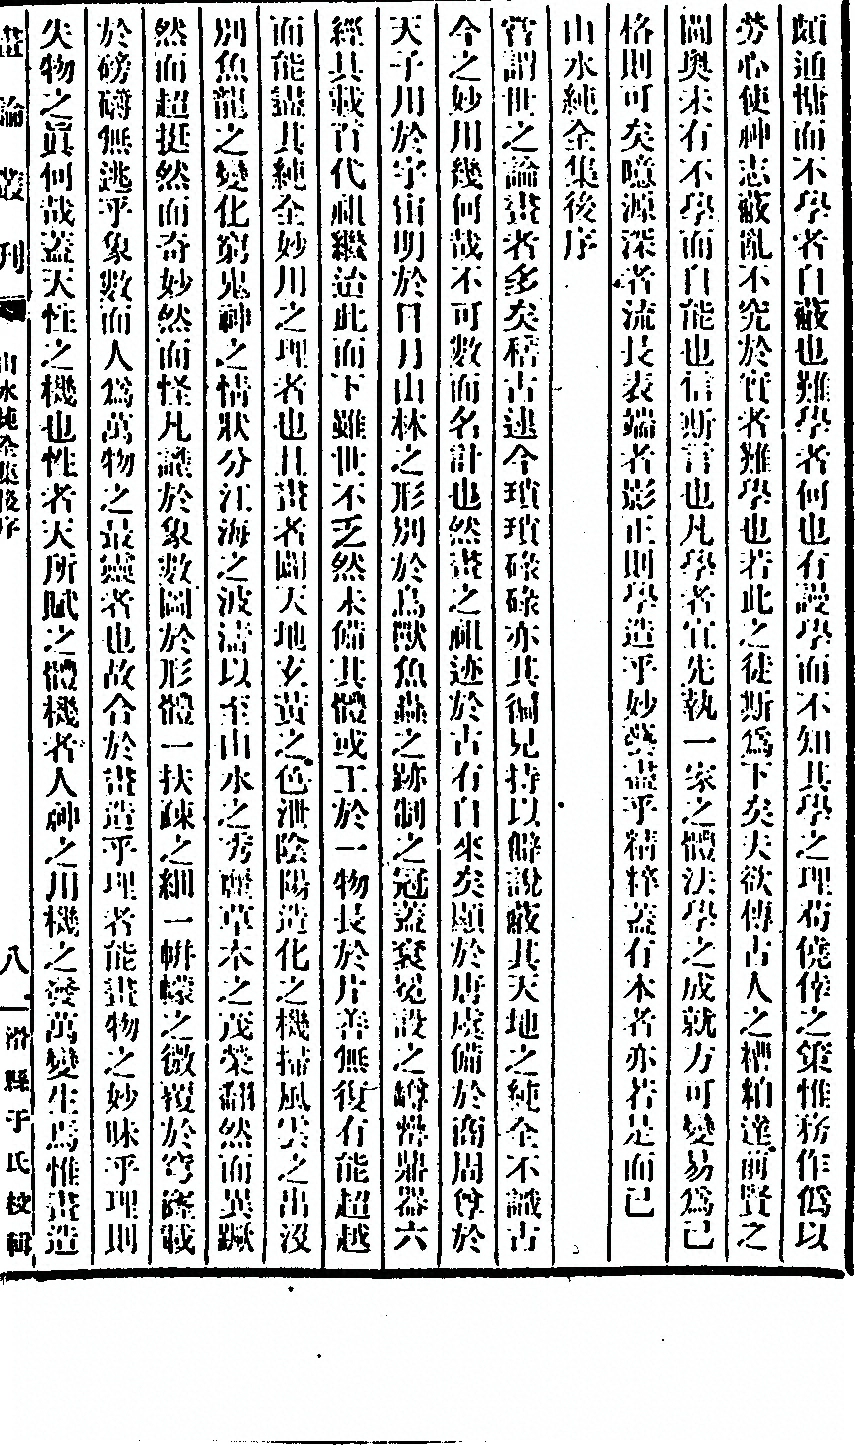 頗通慵而不學者自蔽也難學者何也有謾學而不知其學之理苟僥倖之策惟務作僞以
勞心使神志蔽亂不究於實者難學也若此之徒斯爲下矣夫欲傳古人之糟粕達前賢之
閫奧未有不學而自能也信斯言也凡學者宜先執一家之體法學之成就方可變易爲己
格則可矣噫源深者流長表端者影正則學造乎妙藝盡乎精粹蓋有本者亦若是而已
山水純全集後序
嘗謂世之論畫者多矣稽古逮今瑣瑣碌碌亦其徇見持以僻說蔽其天地之純全不識古
今之妙用幾何哉不可數而名計也然畫之祖迹於古有自來矣顯於唐虞備於商周尊於
天子用於宇宙明於日月山林之形別於鳥獸魚蟲之跡制之冠蓋袞冕設之罇罍鼎器六
經具載百代祖繼治此而下雖世不乏然未備其體或工於一物長於片善無復有能超越
而能盡其純全妙用之理者也且畫者闢天地玄黃之色泄陰陽造化之機掃風雲之出沒
別魚龍之變化窮鬼神之情狀分江海之波濤以至山水之秀麗草木之茂榮翻然而異蹶
然而超挺然而奇妙然而怪凡識於象數圖於形體一扶疎之細一帡幪之微覆於穹窿載
於磅礡無逃乎象數而人爲萬物之最靈者也故合於畫造乎理者能畫物之妙昧乎理則
失物之眞何哉蓋天性之機也性者天所賦之體機者人神之用機之發萬變生焉惟畫造
畫論叢刊 山水純全集後序 八 滑縣于氏校輯